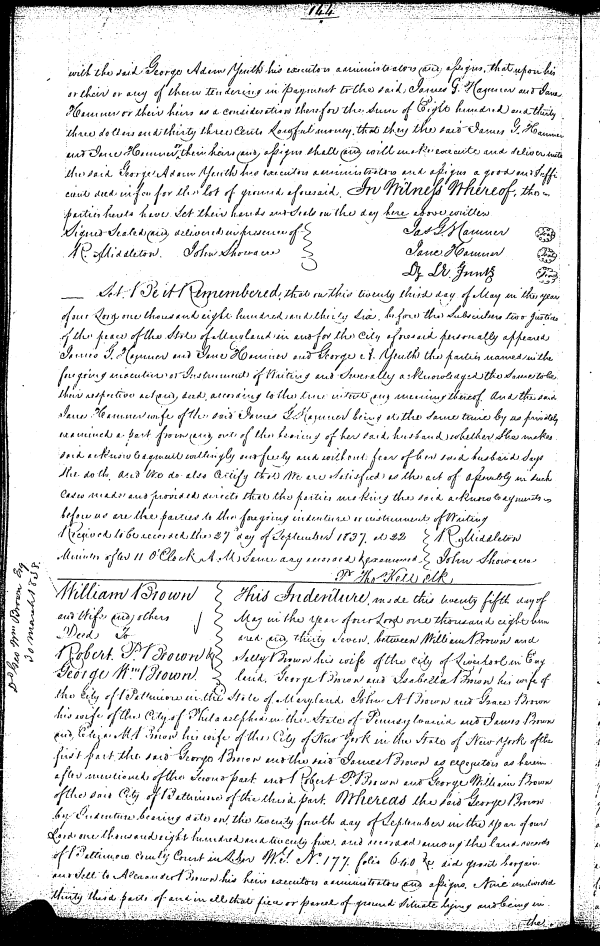 144
with the said George Adam Yeuth his executors administrators and assigns, that upon his
or their or any of them tendering in payment to the said James G. Hamner and Jane
Hamner or their heirs as a consideration therefor the sum of Eight hundred and thirty
three dollars and thirty three Cents Lawful money, that they the said James G. Hamner
and Jane Hamner, their heirs and assigns shall and will make execute and deliver unto
the said George Adam Yeuth his executors administrators and assigns a good and suffi
cient deed in fee for the lot of ground aforesaid. In Witness Whereof, the
parties hereto have Set their hands and Seals on the day here above written
Signed Sealed and delivered in presence of
R. Middleton. John Showacre
Jas G. Hamner
Jane Hamner
Sct. Be it Remembered, that on this twenty third day of May in the year
of our Lord one thousand eight hundred and thirty Six before the Subscribers two Justices
of the peace of the State of Maryland in and for the City aforesaid personally appeared
James G. Hamner and Jane Hamner and George A. Yeuth the parties named in the
foregoing indenture or Instrument of Writing and Severally acknowledged the Same to be
their respective act and deed, according to the true intent and meaning thereof. And the said
Jane Hamner wife of the said James G. Hamner being at the same time by us privately
examined apart from and out of the hearing of her said husband whether She makes
said acknowledgment willingly and freely and without fear of her said husband Says
She doth. And We do also Certify that We are Satisfied as the act of assembly in such
Cases made and provided directs that the parties making the said acknowledgments
before us are the parties to the foregoing indenture or instrument of Writing
Received to be recorded the 27 day of September 1837. at 22
Minutes after 11 O'Clock A.M. Same day recorded & examined
R. Middleton
John Showacre
Pr Tho Kell Clk
William Brown
and Wife and others
Deed To
Robert P. Brown &
George Wm Brown
Geo Wm Brown Esq
30 march 1838
This Indenture, made this twenty fifth day of
May in the year of our Lord one thousand eight hun
dred and thirty Seven, between William Brown and
Brown his wife of the city of Liverpool in Eng
land, George Brown and Isabella Brown his wife of
the City of Baltimore in the State of Maryland John A Brown and Grace Brown
his wife of the City of Philadelphia in the State of Pennsylvania and James Brown
and Eliza Brown his wife of the City of New York in the State of New York of the
first part the said George Brown and the said James Brown as executors as herein
after mentioned of the Second part and Robert P. Brown and George William Brown
of the said City of Baltimore of the third part. Whereas the said George Brown
by Indenture bearing date on the twenty fourth day of September in the year of our
Lord one thousand eight hundred and twenty five, and recorded among the land records
of Baltimore County Court in Liber W.G. No 177 folio 640 &c did grant bargain
and Sell to Alexander Brown his heirs executors administrators and assigns, Nine undivided
thirty third parts of and in all that piece or parcel of ground Situate lying and being in
the